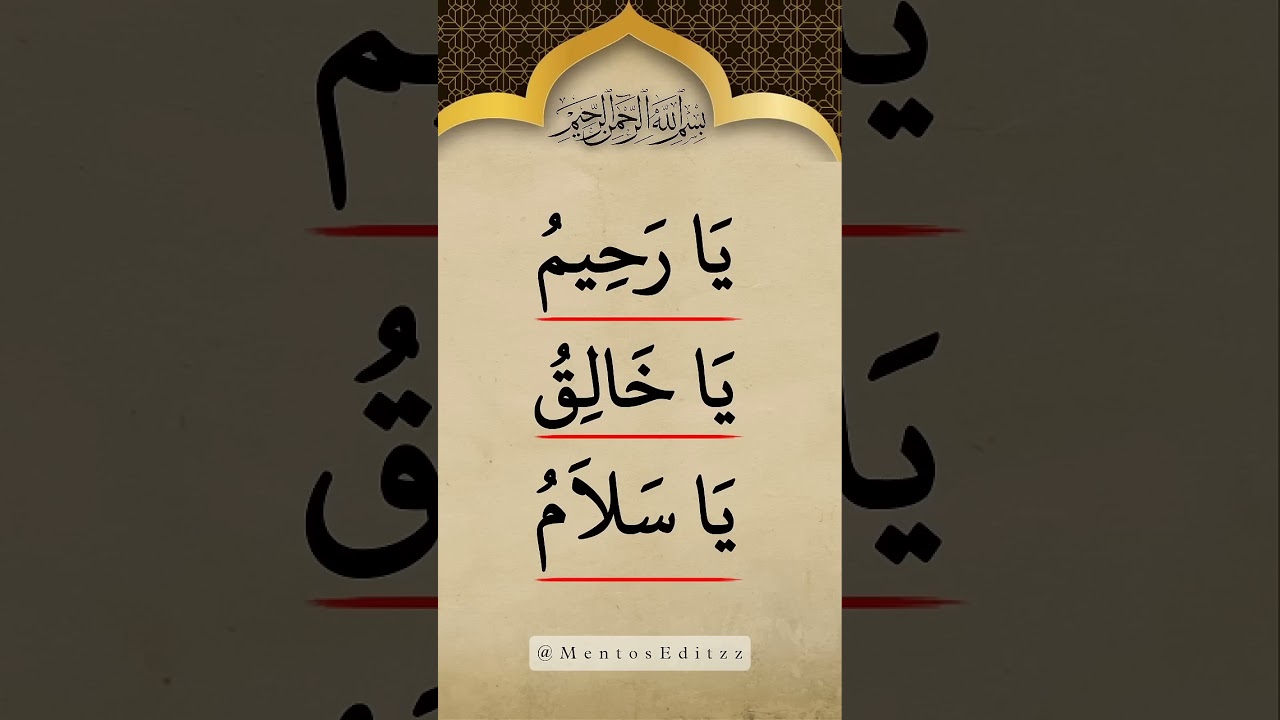 بِسْمِ ٱللَّهِ ٱلرَّحْمَٰنِ ٱلرَّحِيمِ
يَا رَحِيمُ
يَا خَالِقُ
يَا سَلَامُ
@MentosEditzz